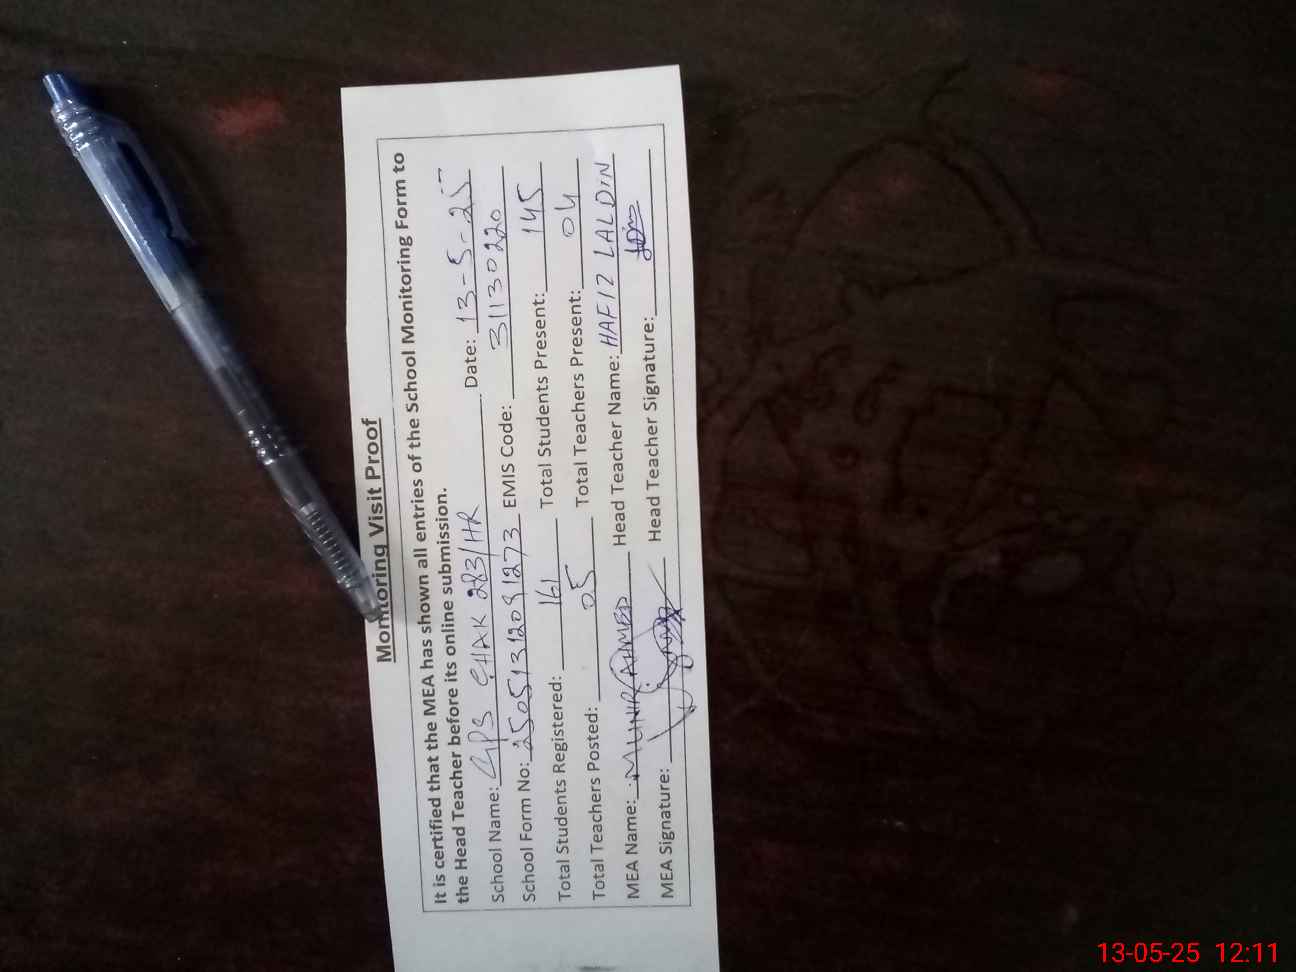 Monitoring Visit Proof
It is certified that the MEA has shown all entries of the School Monitoring Form to
the Head Teacher before its online submission.
School Name: GPS CHAK 283/HR Date: 13-5-25
School Form No: 25051312091273 EMIS Code: 31130220
Total Students Registered: 161 Total Students Present: 145
Total Teachers Posted: 05 Total Teachers Present: 04
MEA Name: MUNIR AHMED Head Teacher Name: HAFIZ LALDIN
MEA Signature: Head Teacher Signature:
13-05-25 12:11